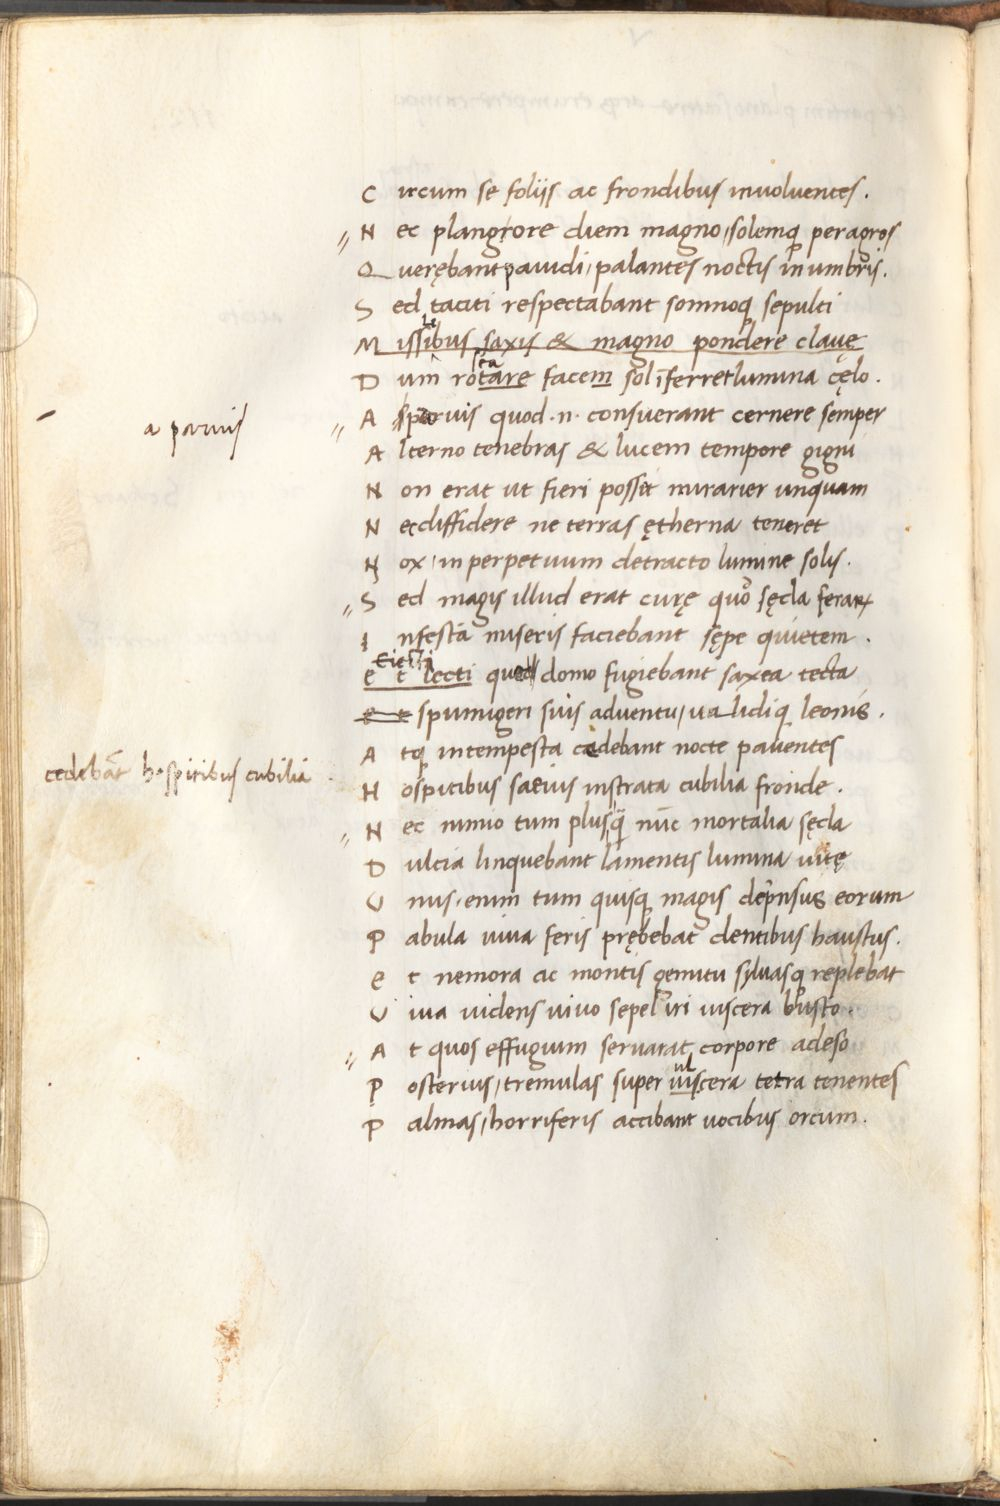 Circum se foliis ac frondibus inuoluentes.
Nec plangrore diem magno, solemq; per agros
Querębant pauidi, palantes noctis in umbris.
Sed taciti respectabant somnoq; sepulti
le
Missibus saxis & magno pondere clauę
sea
Dum rotare facem sol īferret lumina cęlo.
a paruis
A paruis quod .n. consuerant cernere semper
Alterno tenebras & lucem tempore gigni
Non erat ut fieri posset mirarier unquam
Nec diffidere ne terras ętherna teneret
Nox, in perpetuum detracto lumine solis.
Sed magis illud erat curę quo sęcla ferarꝝ
Infestā miseris faciebant sępe quietem.
Eiecti
et lecti quod domo fugiebant saxea tecta
spumigeri suis aduentu, ualidiq; leonis.
Atq; intempesta cedebant nocte pauentes
cedebāt hospitibus cubilia
Hospitibus saeuis instrata cubilia fronde.
Nec nimio tum plusq̄ nūc mortalia sęcla
Dulcia linquebant lamentis lumina uitę
Unus, enim tum quisq; magis deprnsus eorum
Pabula uiua feris prębebat dentibus haustus.
et nemora ac montis gemitu syluasq; replebat
Uiua uidens uiuo sepeliri uiscera busto.
At quos effugium seruarat corpore adeso
ul
Posterius, tremulas super uiscera tetra tenentes
Palmas, horriferis accibant uocibus orcum.